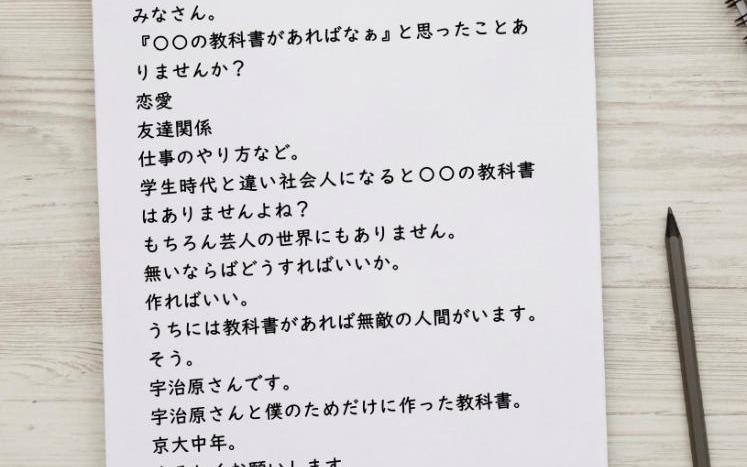 みなさん。
『〇〇の教科書があればなぁ』と思ったことあ
りませんか？
恋愛
友達関係
仕事のやり方など。
学生時代と違い社会人になると〇〇の教科書
はありませんよね？
もちろん芸人の世界にもありません。
無いならばどうすればいいか。
作ればいい。
うちには教科書があれば無敵の人間がいます。
そう。
宇治原さんです。
宇治原さんと僕のためだけに作った教科書。
京大中年。
よろしくお願いします